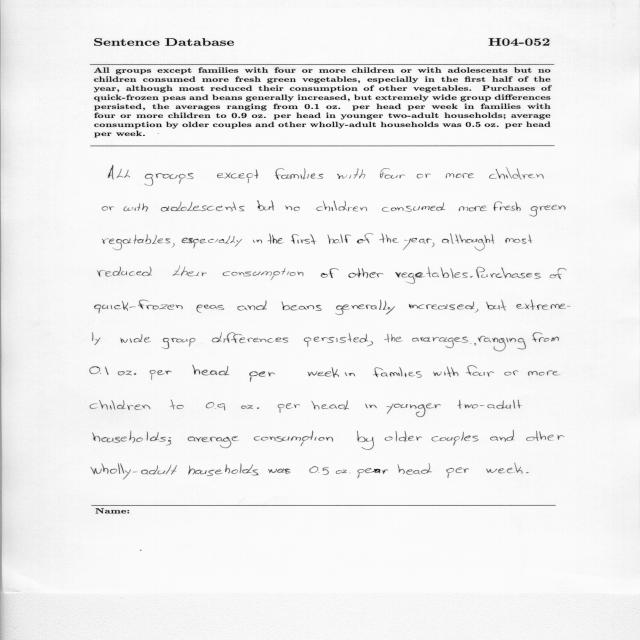 Sentence Database H04-052
All groups except families with four or more children or with adolescents but no
children consumed more fresh green vegetables, especially in the first half of the
year, although most reduced their consumption of other vegetables. Purchases of
quick-frozen peas and beans generally increased, but extremely wide group differences
persisted, the averages ranging from 0.1 oz. per head per week in families with
four or more children to 0.9 oz. per head in younger two-adult households; average
consumption by older couples and other wholly-adult households was 0.5 oz. per head
per week.
ALL groups except families with four or more children
or with adolescents but no children consumed more fresh green
vegatables, especially in the first half of the year, althought most
reduced their consumption of other vegetables. Purchases of
quick-frozen peas and beans generally increased, but extreme-
ly wide group differences persisted, the avarages, ranging from
0.1 oz. per head per week in families with four or more
children to 0.9 oz. per head in younger two-adult
households; average consumption by older couples and other
wholly-adult households was 0.5 oz pear head per week.
Name: